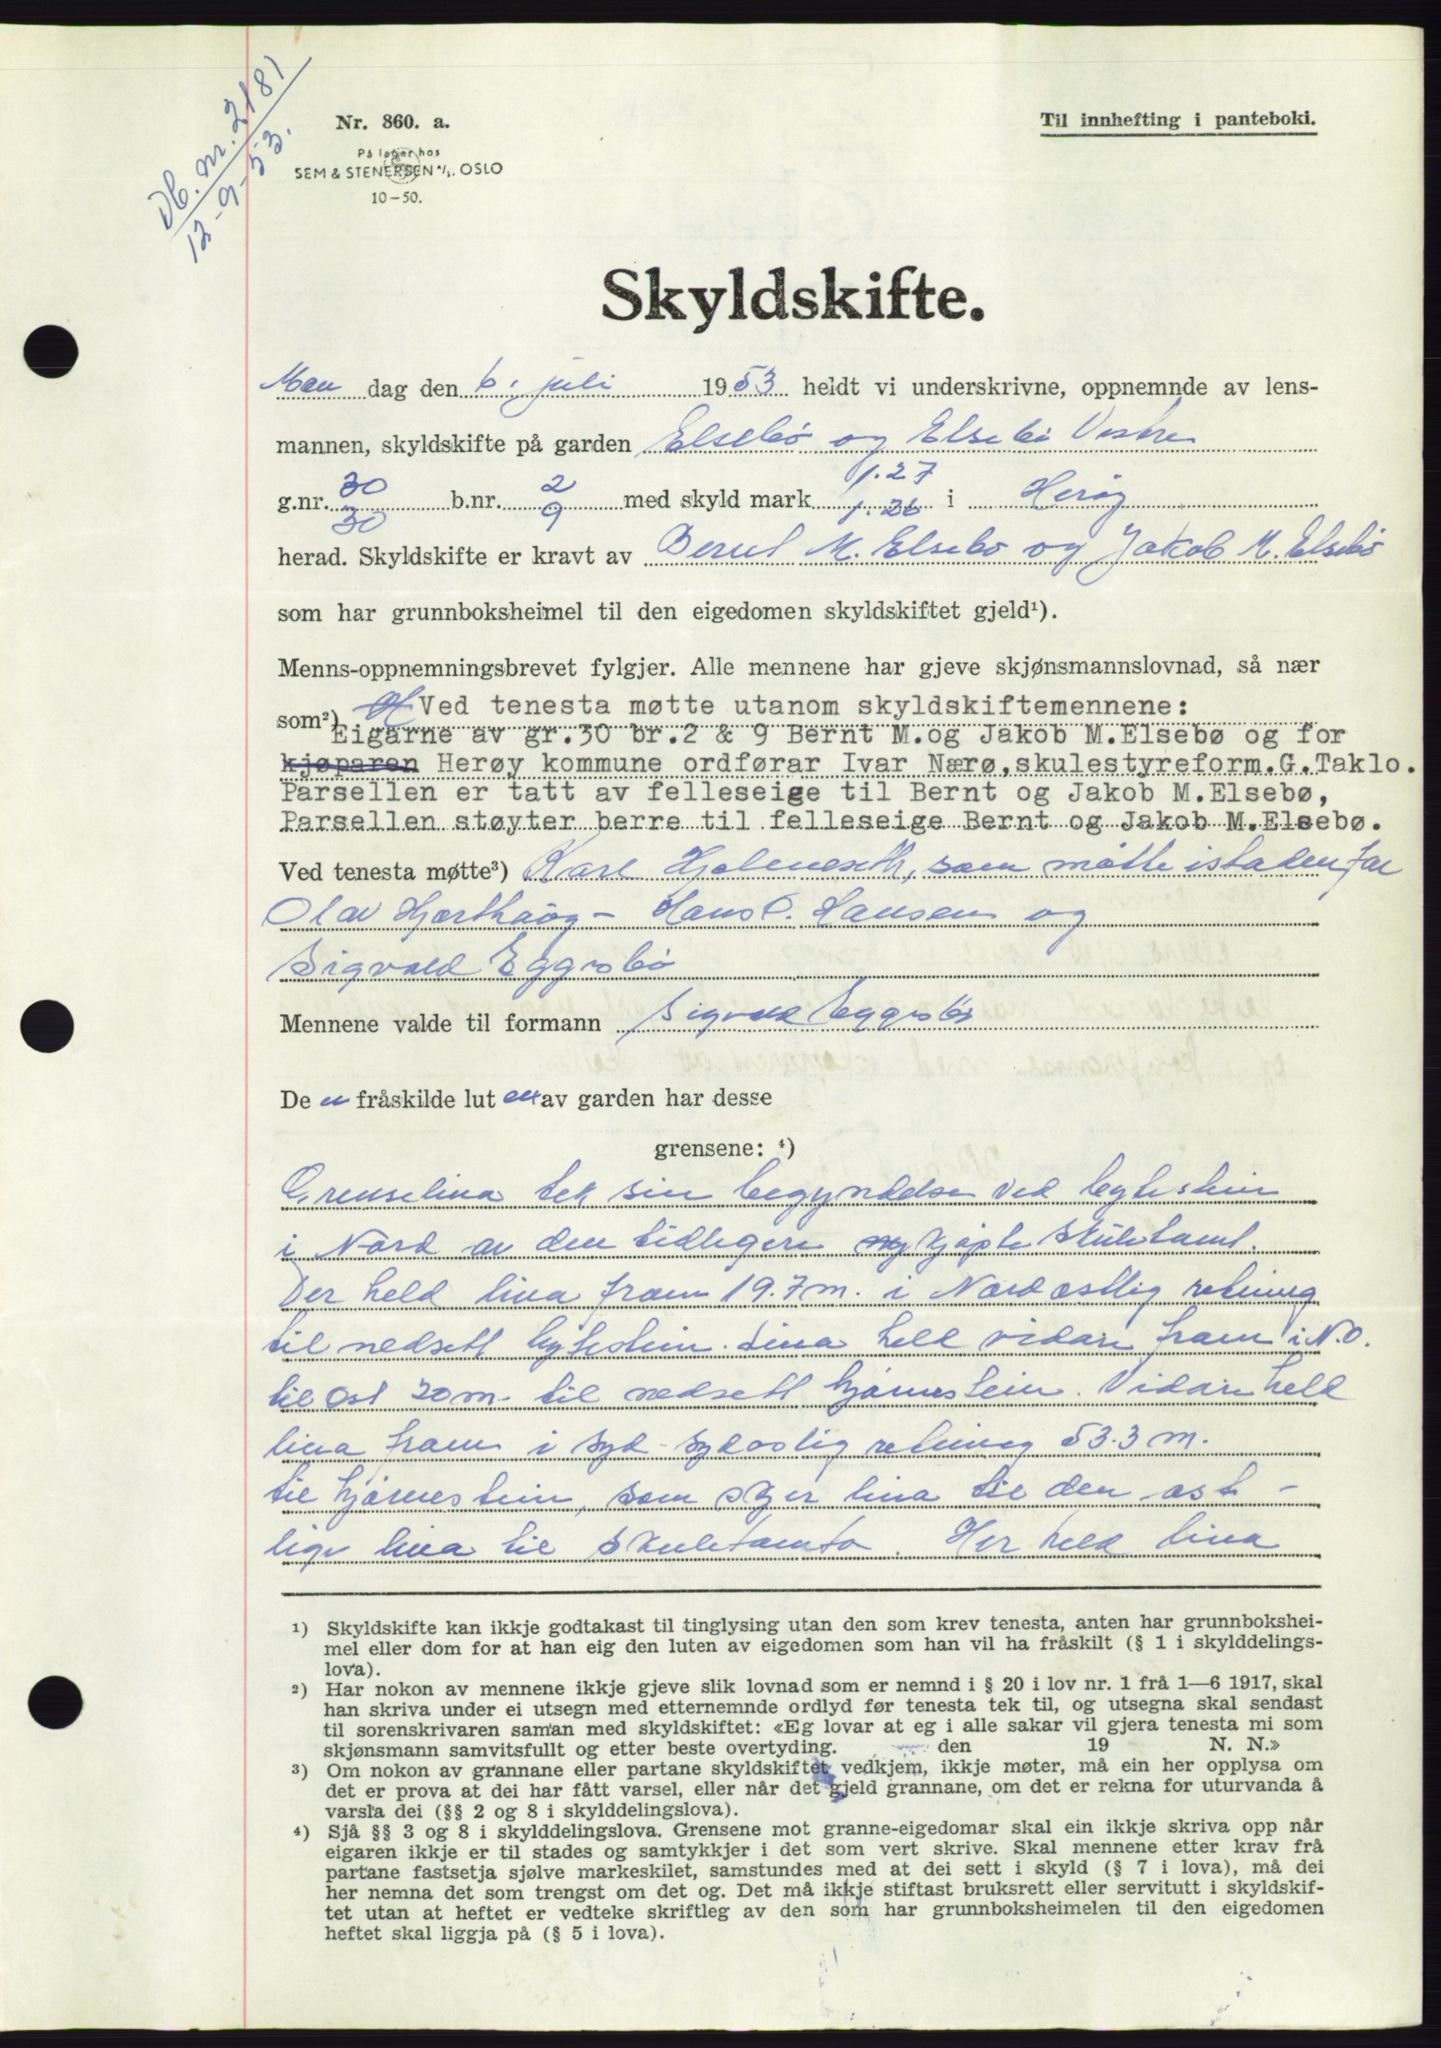 Db. nr. 2181
12-9-53.
Nr. 860. a.
Til innhefting i panteboki.
På lager hos
SEM & STENERSEN A/S. OSLO
10-50.
Skyldskifte.
Man dag den 6. juli 1953 heldt vi underskrivne, oppnemnde av lens-
mannen, skyldskifte på garden Elsebö og Elsebö Vestre
g.nr. 30 b.nr. 2 med skyld mark 1.27 i Heröy
30 9 1.26
herad. Skyldskifte er kravt av Bernt M. Elsebö og Jakob M. Elsebö
som har grunnboksheimel til den eigedomen skyldskiftet gjeld¹).
Menns-oppnemningsbrevet fylgjer. Alle mennene har gjeve skjønsmannslovnad, så nær
som²) Ved tenesta møtte utanom skyldskiftemennene:
Eigarne av gr.30 br.2 & 9 Bernt M.og Jakob M.Elsebø og for
kjøparen Herøy kommune ordførar Ivar Nærø,skulestyreform.G.Taklo.
Parsellen er tatt av felleseige til Bernt og Jakob M.Elsebø,
Parsellen støyter berre til felleseige Bernt og Jakob M.Elsebø.
Ved tenesta møtte³) Karl Hjelmeseth, som mötte istaden for
Olav Hjorthaug - Hans O. Hansen og
Sigvald Eggesbö
Mennene valde til formann Sigvald Eggesbö
De n fråskilde lut en av garden har desse
grensene: ⁴)
Grenselina tek sin begyndelse ved bytestein
i Nord av den tidligere kjöpte skuletomt.
Der held lina fram 19.7 m. i Nordostlig retning
til nedsett bytestein. Lina held vidare fram i N.O.
til ost 20 m. til nedsett hjörnestein. Vidare held
lina fram i syd-sydostlig retning 53.3 m.
til hjörnestein, som skjer lina til den ost-
lige lina til skuletomta. Her held lina
¹) Skyldskifte kan ikkje godtakast til tinglysing utan den som krev tenesta, anten har grunnbokshei-
mel eller dom for at han eig den luten av eigedomen som han vil ha fråskilt (§ 1 i skylddelings-
lova).
²) Har nokon av mennene ikkje gjeve slik lovnad som er nemnd i § 20 i lov nr. 1 frå 1—6 1917, skal
han skriva under ei utsegn med etternemnde ordlyd før tenesta tek til, og utsegna skal sendast
til sorenskrivaren saman med skyldskiftet: «Eg lovar at eg i alle sakar vil gjera tenesta mi som
skjønsmann samvitsfullt og etter beste overtyding. den 19 N. N.»
³) Om nokon av grannane eller partane skyldskiftet vedkjem, ikkje møter, må ein her opplysa om
det er prova at dei har fått varsel, eller når det gjeld grannane, om det er rekna for uturvanda å
varsla dei (§§ 2 og 8 i skylddelingslova).
⁴) Sjå §§ 3 og 8 i skylddelingslova. Grensene mot granne-eigedomar skal ein ikkje skriva opp når
eigaren ikkje er til stades og samtykkjer i det som vert skrive. Skal mennene etter krav frå
partane fastsetja sjølve markeskilet, samstundes med at dei sett i skyld (§ 7 i lova), må dei
her nemna det som trengst om det og. Det må ikkje stiftast bruksrett eller servitutt i skyldskif-
tet utan at heftet er vedteke skriftleg av den som har grunnboksheimelen til den eigedomen
heftet skal liggja på (§ 5 i lova).